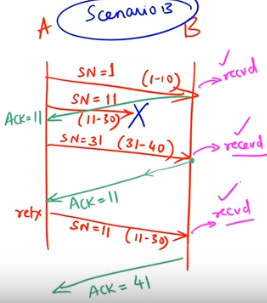 Scenario 13
A B
SN=1 (1-10)
recvd
SN=11
Ack=11
(11-30) X
SN=31 (31-40)
recevd
Ack=11
retx
SN=11 (11-30)
recvd
Ack = 41